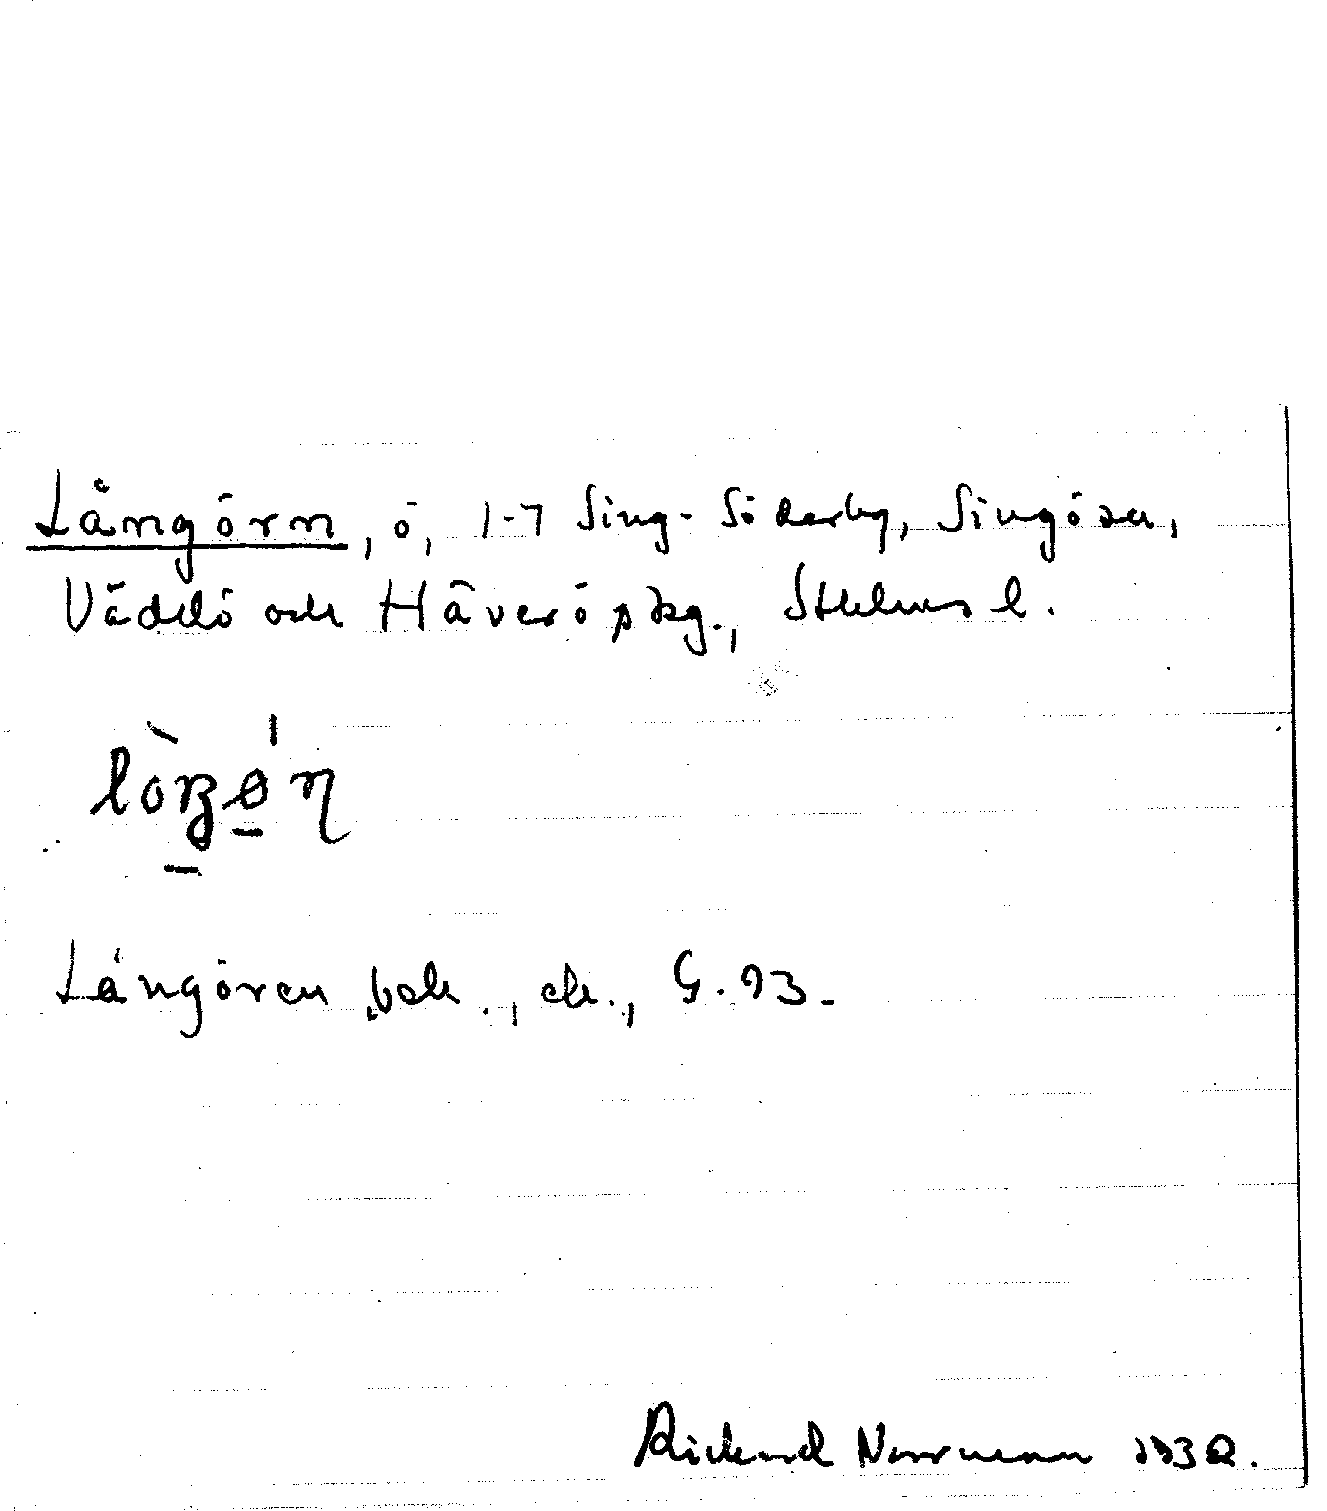 Långörn, ö, 1-7 Sing-Söderby, Singö sn,
Väddö och Häverö skg., Sthlms l.
Långören bok., ek., G. 93.
Rickard Norrman 1932.